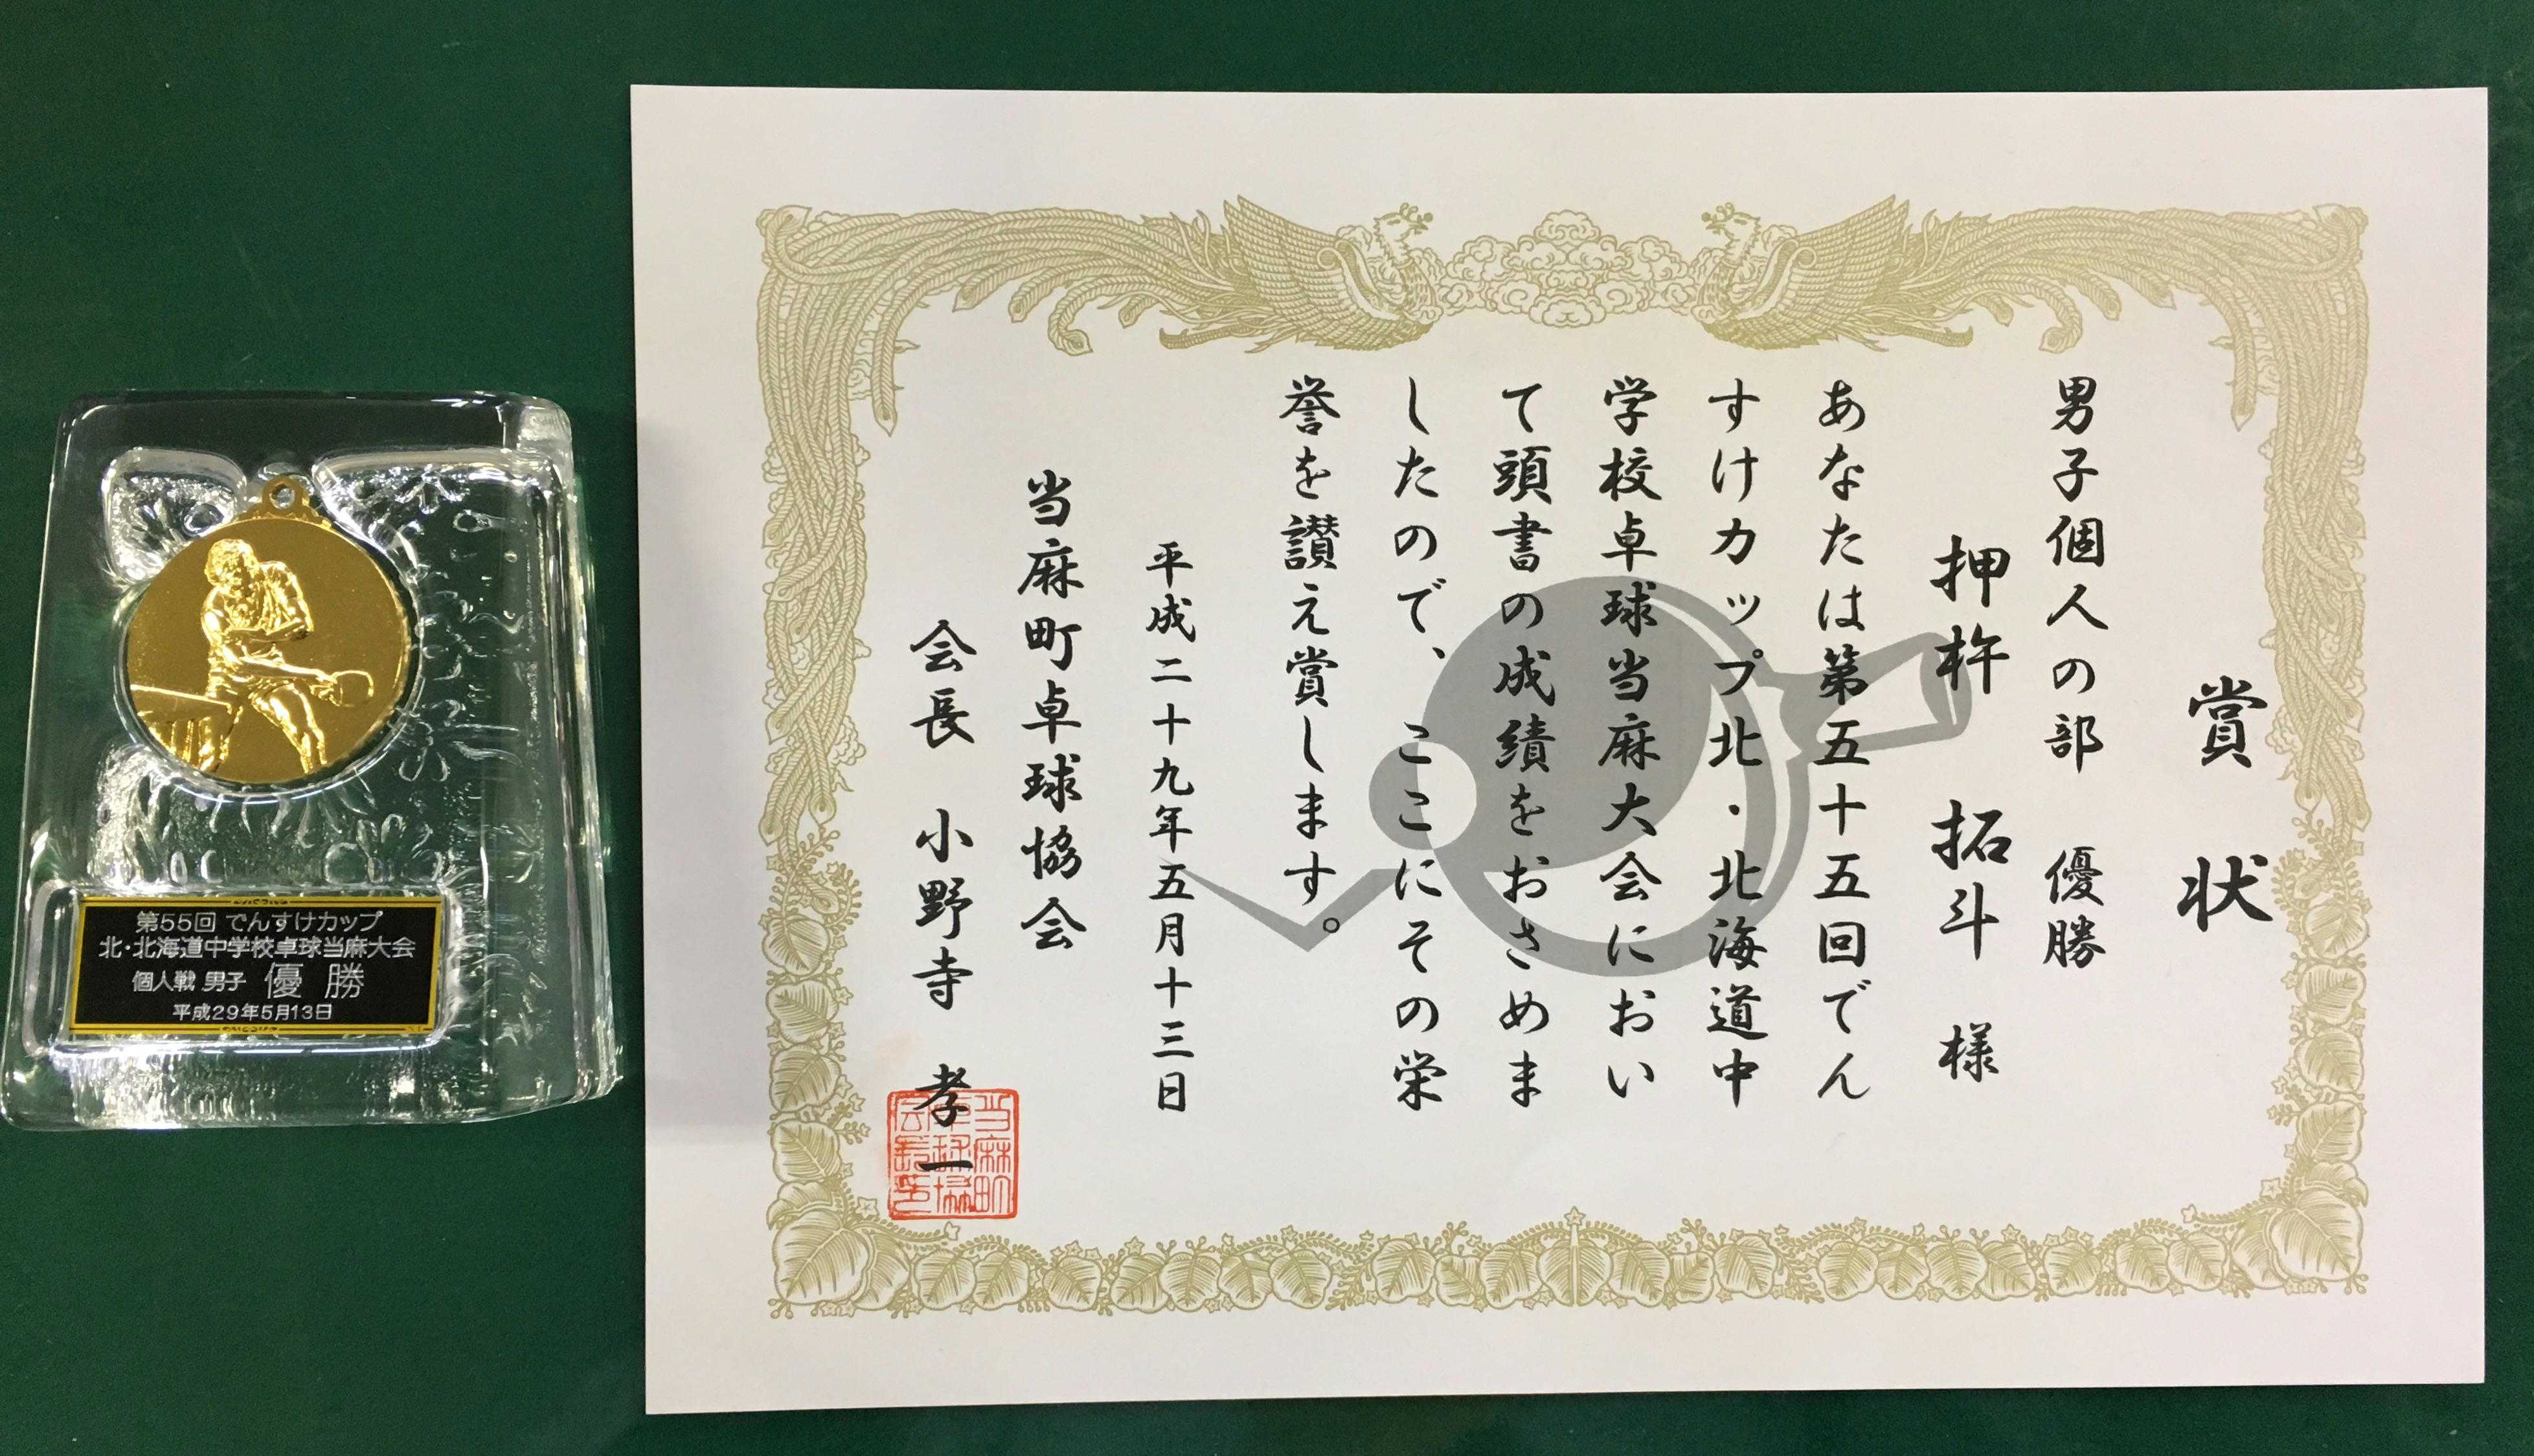 賞状
男子個人の部 優勝
押杵 拓斗 様
あなたは第五十五回でん
すけカップ北・北海道中
学校卓球当麻大会におい
て頭書の成績をおさめま
したので、ここにその栄
誉を讃え賞します。
平成二十九年五月十三日
当麻町卓球協会
会長 小野寺 孝一
当麻町
卓球協
会長印
第55回 でんすけカップ
北・北海道中学校卓球当麻大会
個人戦 男子 優勝
平成29年5月13日